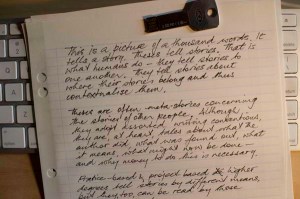 This is a picture of a thousand words. It
tells a story. Theses tell stories. That is
what humans do – they tell stories to
one another. They tell stories about
where their stories belong and thus
contextualise them.
These are often meta-stories concerning
the stories of other people. Although,
they adopt disciplinary writing conventions,
they are, at heart, tales about what the
author did, what was found out, what
it means, what might now be done –
and why money to do this is necessary.
Practice-based & project based
degrees tell stories by different means,
but they, too, can be read by these